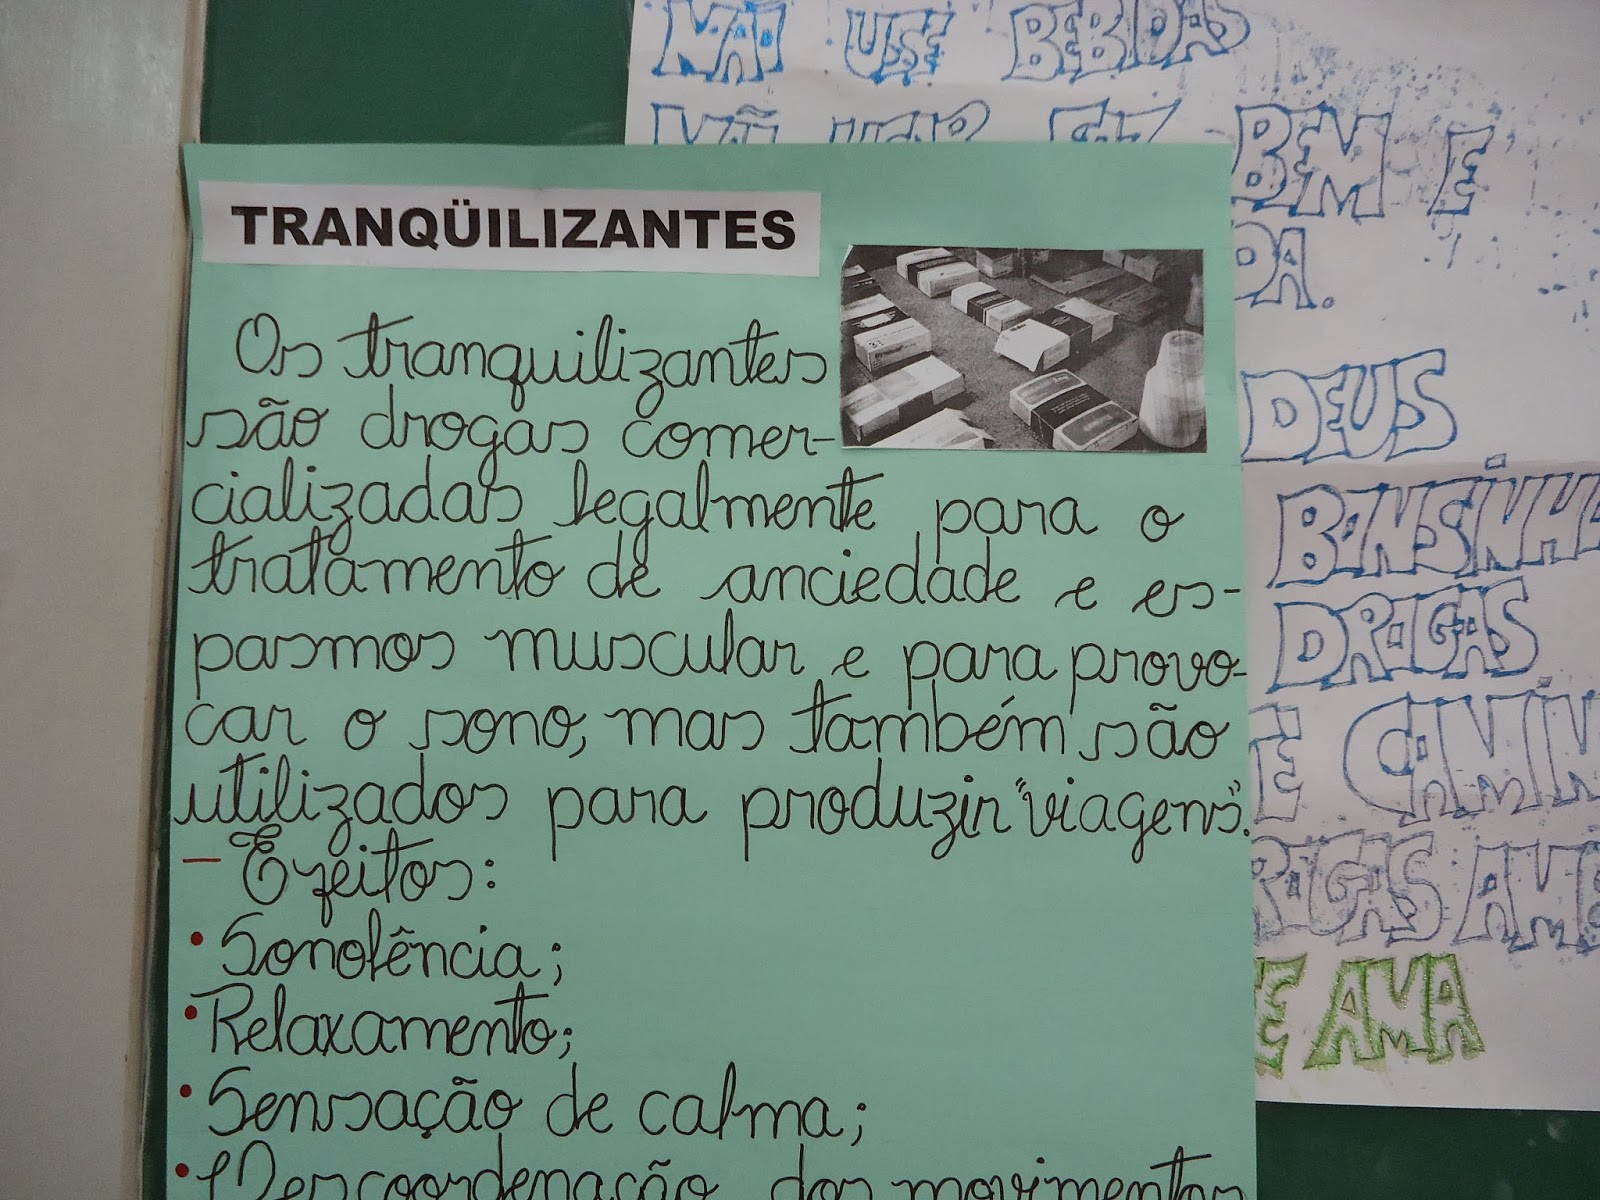 NÃO USE BEBIDAS
BEM E
DA.
DEUS
DROGAS
E CAMIN
ROGAS AME
TE AMA
TRANQÜILIZANTES
Os tranquilizantes
são drogas comer-
cializadas legalmente para o
tratamento de anciedade e es-
pasmos muscular e para provo-
car o sono, mas também são
utilizados para produzir "viagens".
— Efeitos:
• Sonolência;
• Relaxamento;
• Sensação de calma;
• Descoordenação dos movimentos